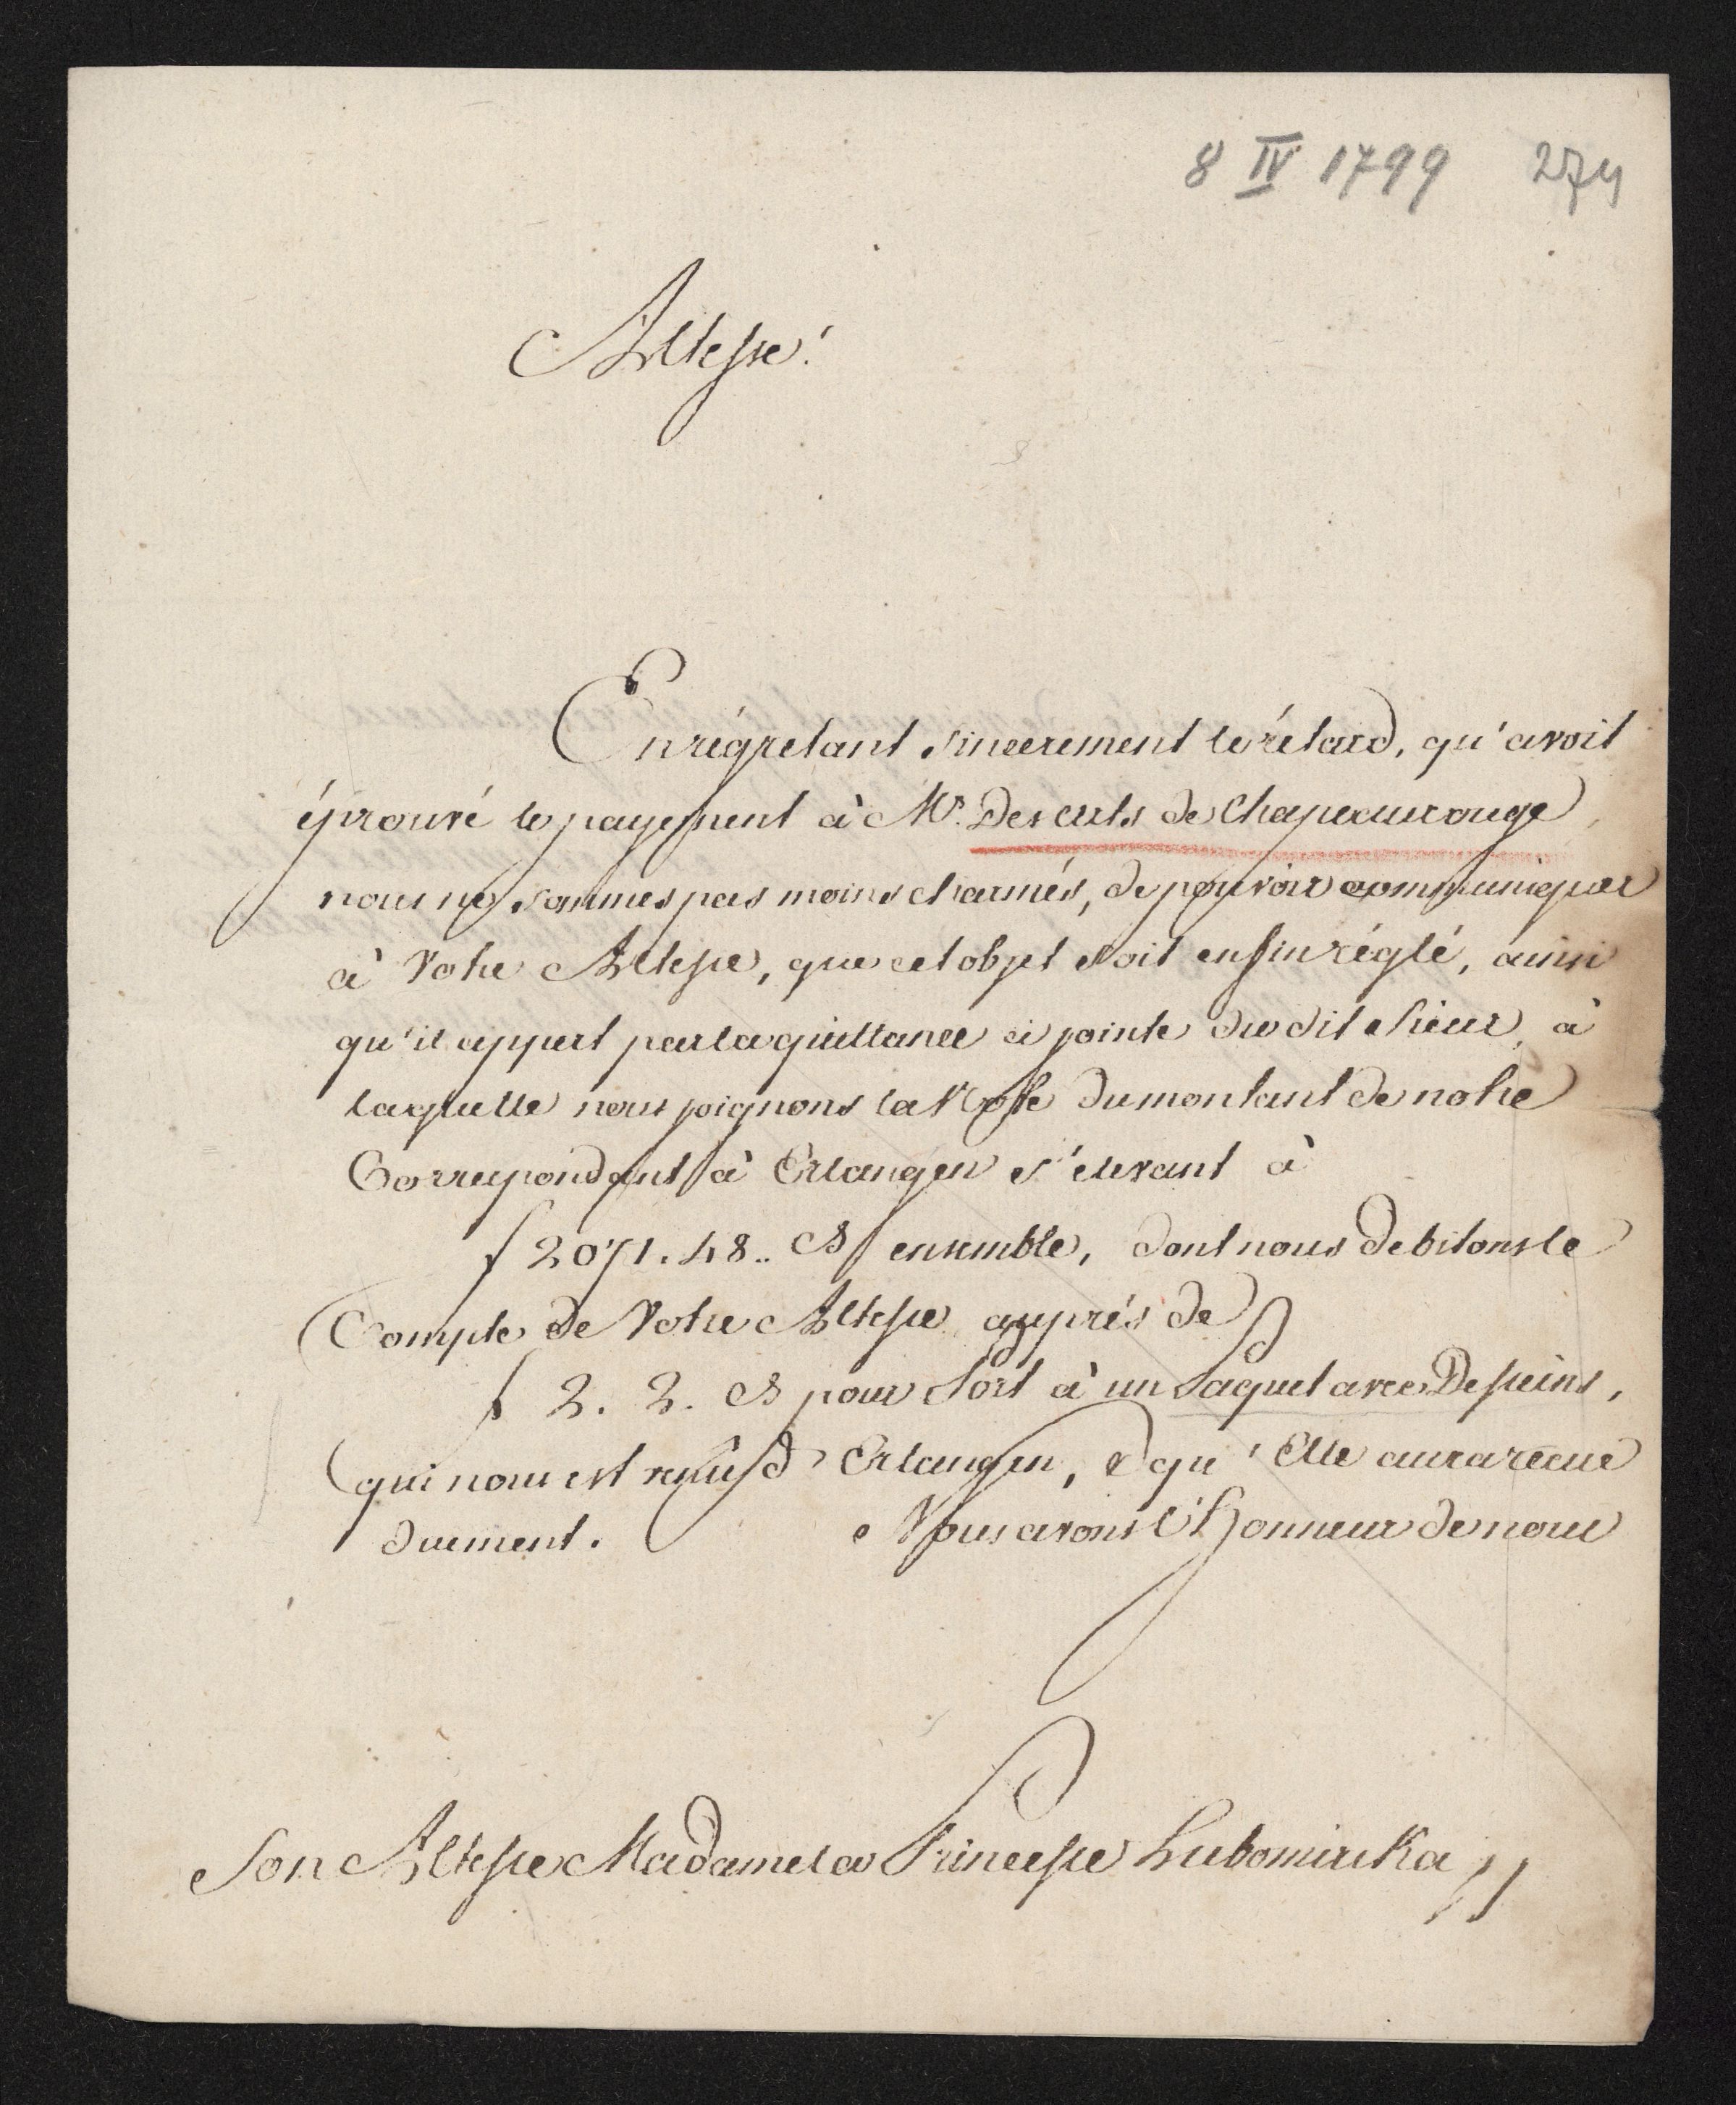 8 IV 1799 274
Altesse!
En régretant sincerement le rétard, qu'avoit
éprouvé le payement à Mr. Des Arts de Chapeaurouge,
nous ne sommes pas moins charmés, de pouvoir communiquer
à Votre Altesse, que cet objet soit enfin réglé, ainsi
qu'il appert par la quittance ci jointe du dit Sieur, à
laquelle nous joignons la Notte du montant de notre
Correspondant à Erlangen s'elevant à
f 2071. 48.. ensemble, dont nous debitons le
Compte de Votre Altesse auprés de
f 2. 2. pour Port à un Paquet avec Desseins,
qui nous est venu d'Erlangen, & qu'Elle aura reçue
duement. Nous avons l'Honneur de nous
Son Altesse Madame la Princesse Lubomirska